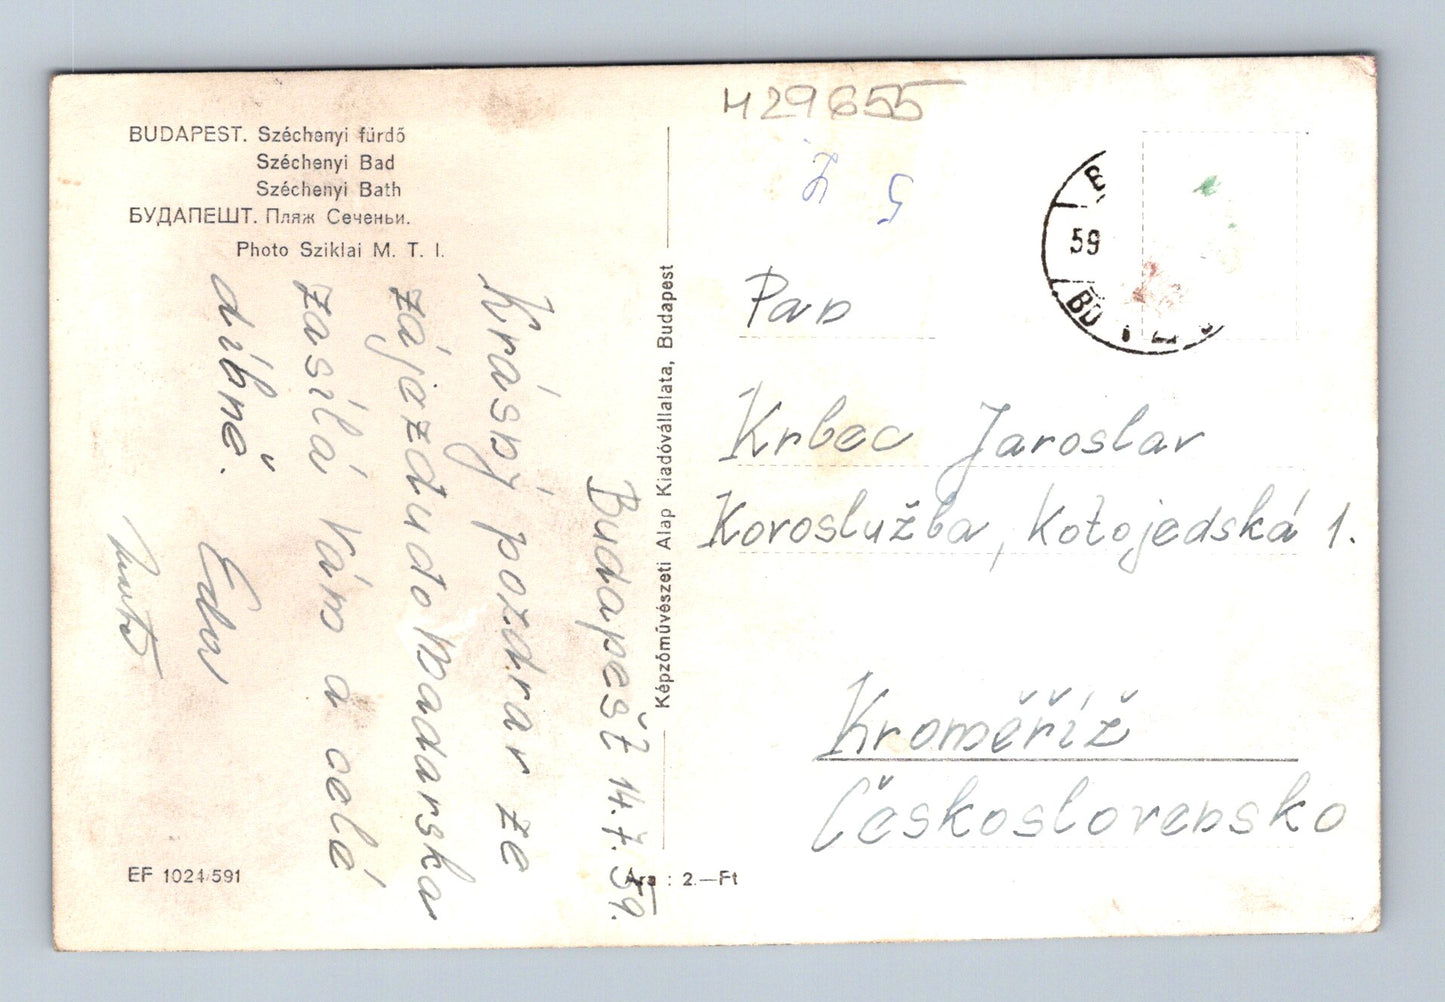 BUDAPEST. Széchenyi fürdő
Széchenyi Bad
Széchenyi Bath
БУДАПЕШТ. Пляж Сеченьи.
Photo Sziklai M. T. I.
Budapešť 14.7.59.
Krásný pozdrav ze
zájezdu do Maďarska
zasílá Vám a celé
dílně.
Eda
EF 1024/591
Ára : 2.—Ft
Képzőművészeti Alap Kiadóvállalata, Budapest
H29655
5
59
BU
Pan
Krbec Jaroslav
Kovoslužba, Kotojedská 1.
Kroměříž
Československo